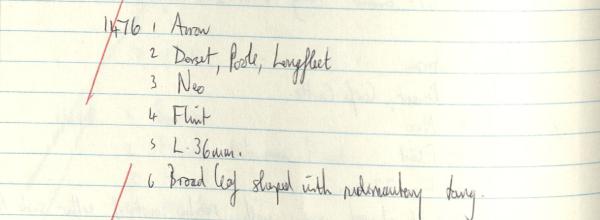 1476 1 Arrow
2 Dorset, Poole, Longfleet
3 Neo
4 Flint
5 L. 36mm.
6 Broad leaf shaped with rudimentary tang.